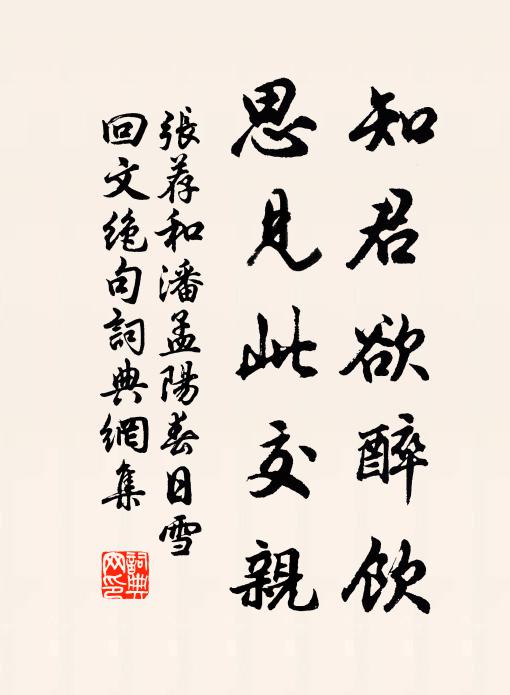 知君欲醉飲
思見此交親
張荐和潘孟陽春日雪
回文絶句詞典網集
詞典
网印